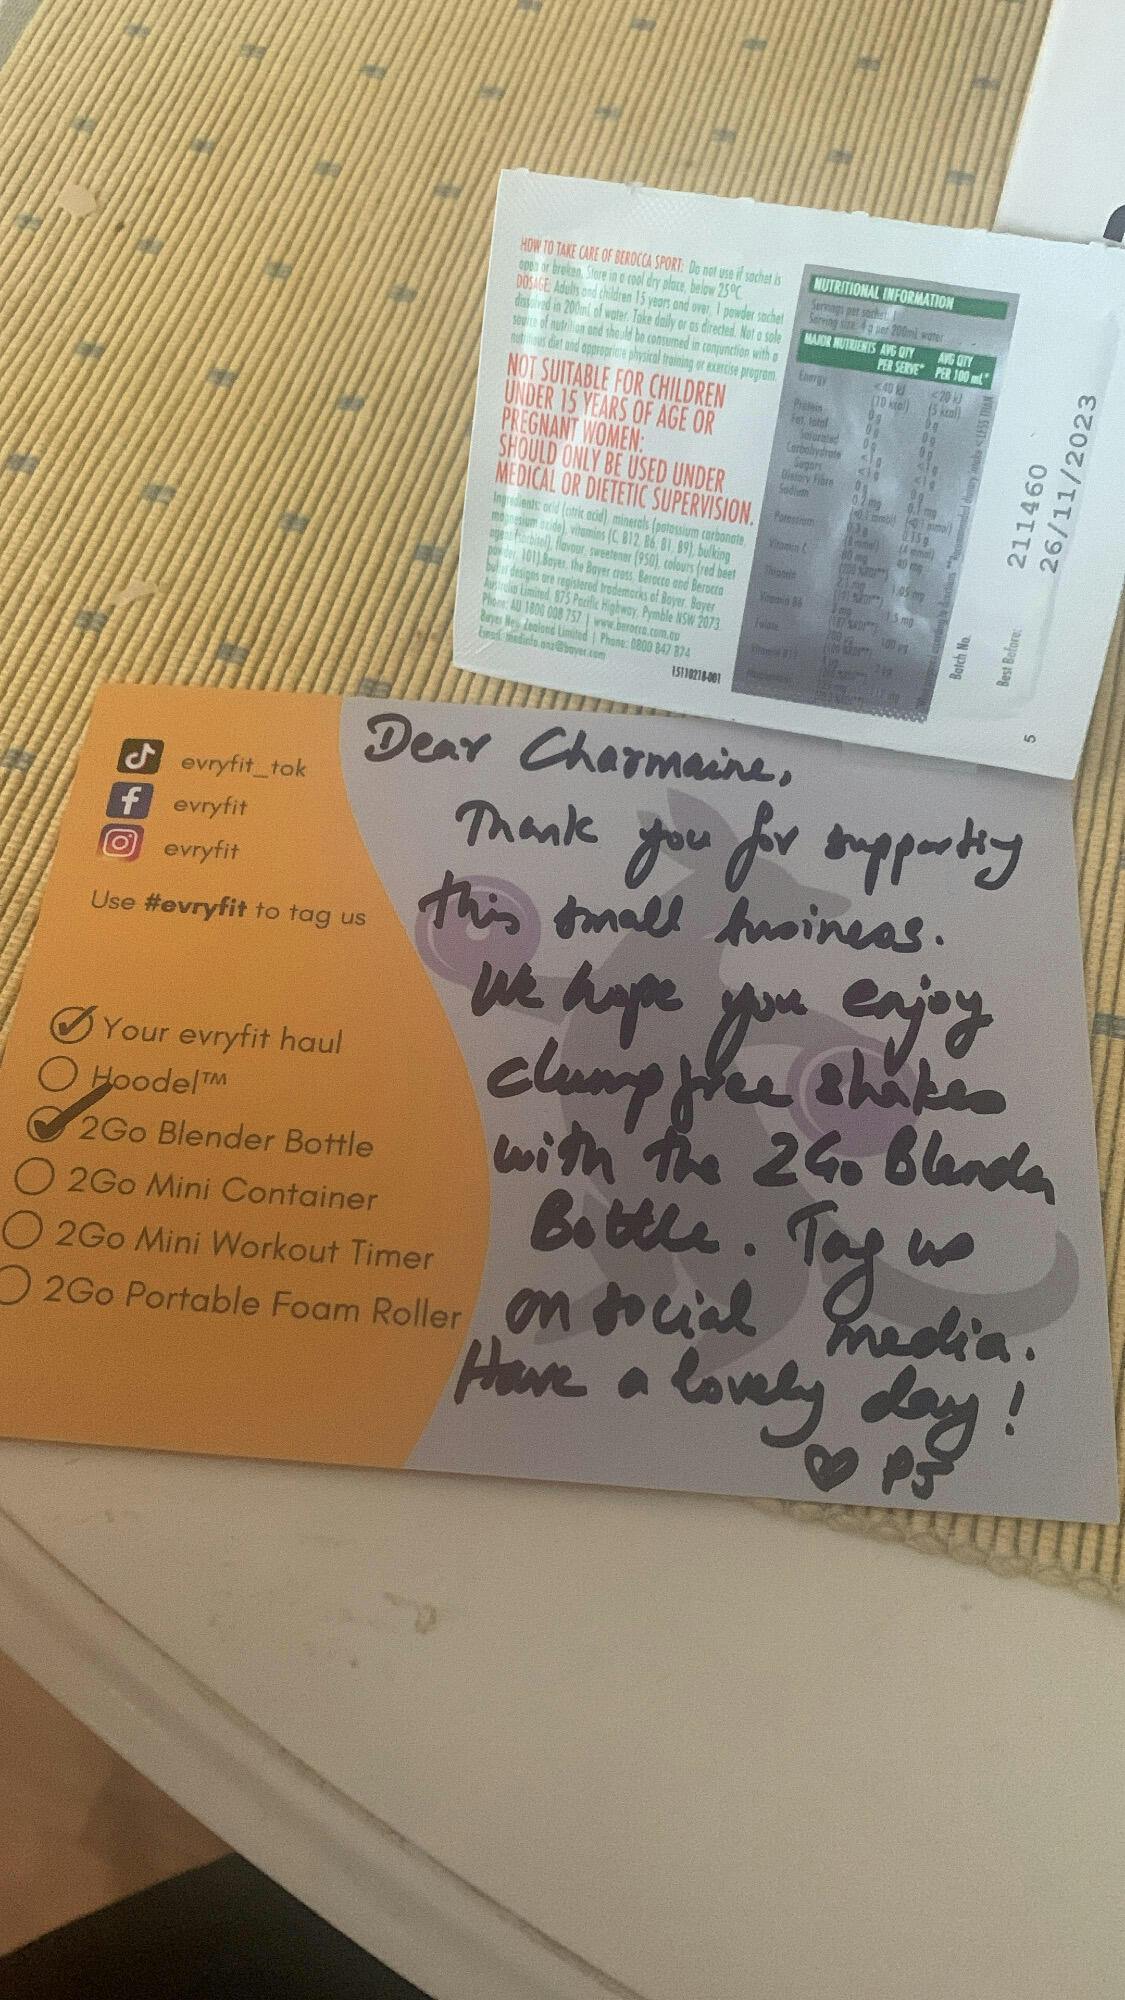 HOW TO TAKE CARE OF BEROCCA SPORT: Do not use if sachet is
open or broken. Store in a cool dry place, below 25°C.
DOSAGE: Adults and children 15 years and over, 1 powder sachet
dissolved in 200mL of water. Take daily or as directed. Not a sole
source of nutrition and should be consumed in conjunction with a
nutritious diet and appropriate physical training or exercise program.
NOT SUITABLE FOR CHILDREN
UNDER 15 YEARS OF AGE OR
PREGNANT WOMEN:
SHOULD ONLY BE USED UNDER
MEDICAL OR DIETETIC SUPERVISION.
Ingredients: acid (citric acid), minerals (potassium carbonate,
magnesium oxide), vitamins (C, B12, B6, B1, B9), bulking
agent (sorbitol), flavour, sweetener (950), colours (red beet
powder, 101). Bayer, the Bayer cross, Berocca and Berocca
designs are registered trademarks of Bayer. Bayer
Australia Limited, 875 Pacific Highway, Pymble NSW 2073
Phone: AU 1800 008 757 | www.berocca.com.au
Bayer New Zealand Limited | Phone: 0800 847 874
15110218-001
NUTRITIONAL INFORMATION
Servings per sachet: 1
Serving size: 4 g per 200mL water
MAJOR NUTRIENTS AVG QTY PER SERVE* AVG QTY PER 100 mL*
Energy <40 kJ <20 kJ
(10 kcal) (5 kcal)
Protein 0 g 0 g
Fat, total 0 g 0 g
Saturated 0 g 0 g
Carbohydrate <1 g <1 g
Sugars
Dietary Fibre
Sodium
Potassium
Vitamin C
Thiamin 1.05 mg
Vitamin B6 1.5 mg
Folate 100 µg
Vitamin B12
Batch No. 211460
Best Before: 26/11/2023
5
evryfit_tok
evryfit
evryfit
Use #evryfit to tag us
Your evryfit haul
Hoodel™
2Go Blender Bottle
2Go Mini Container
2Go Mini Workout Timer
2Go Portable Foam Roller
Dear Charmaine,
Thank you for supporting
this small business.
We hope you enjoy
clump free shakes
with the 2Go Blender
Bottle. Tag us
on social media.
Have a lovely day!
♡ PJ